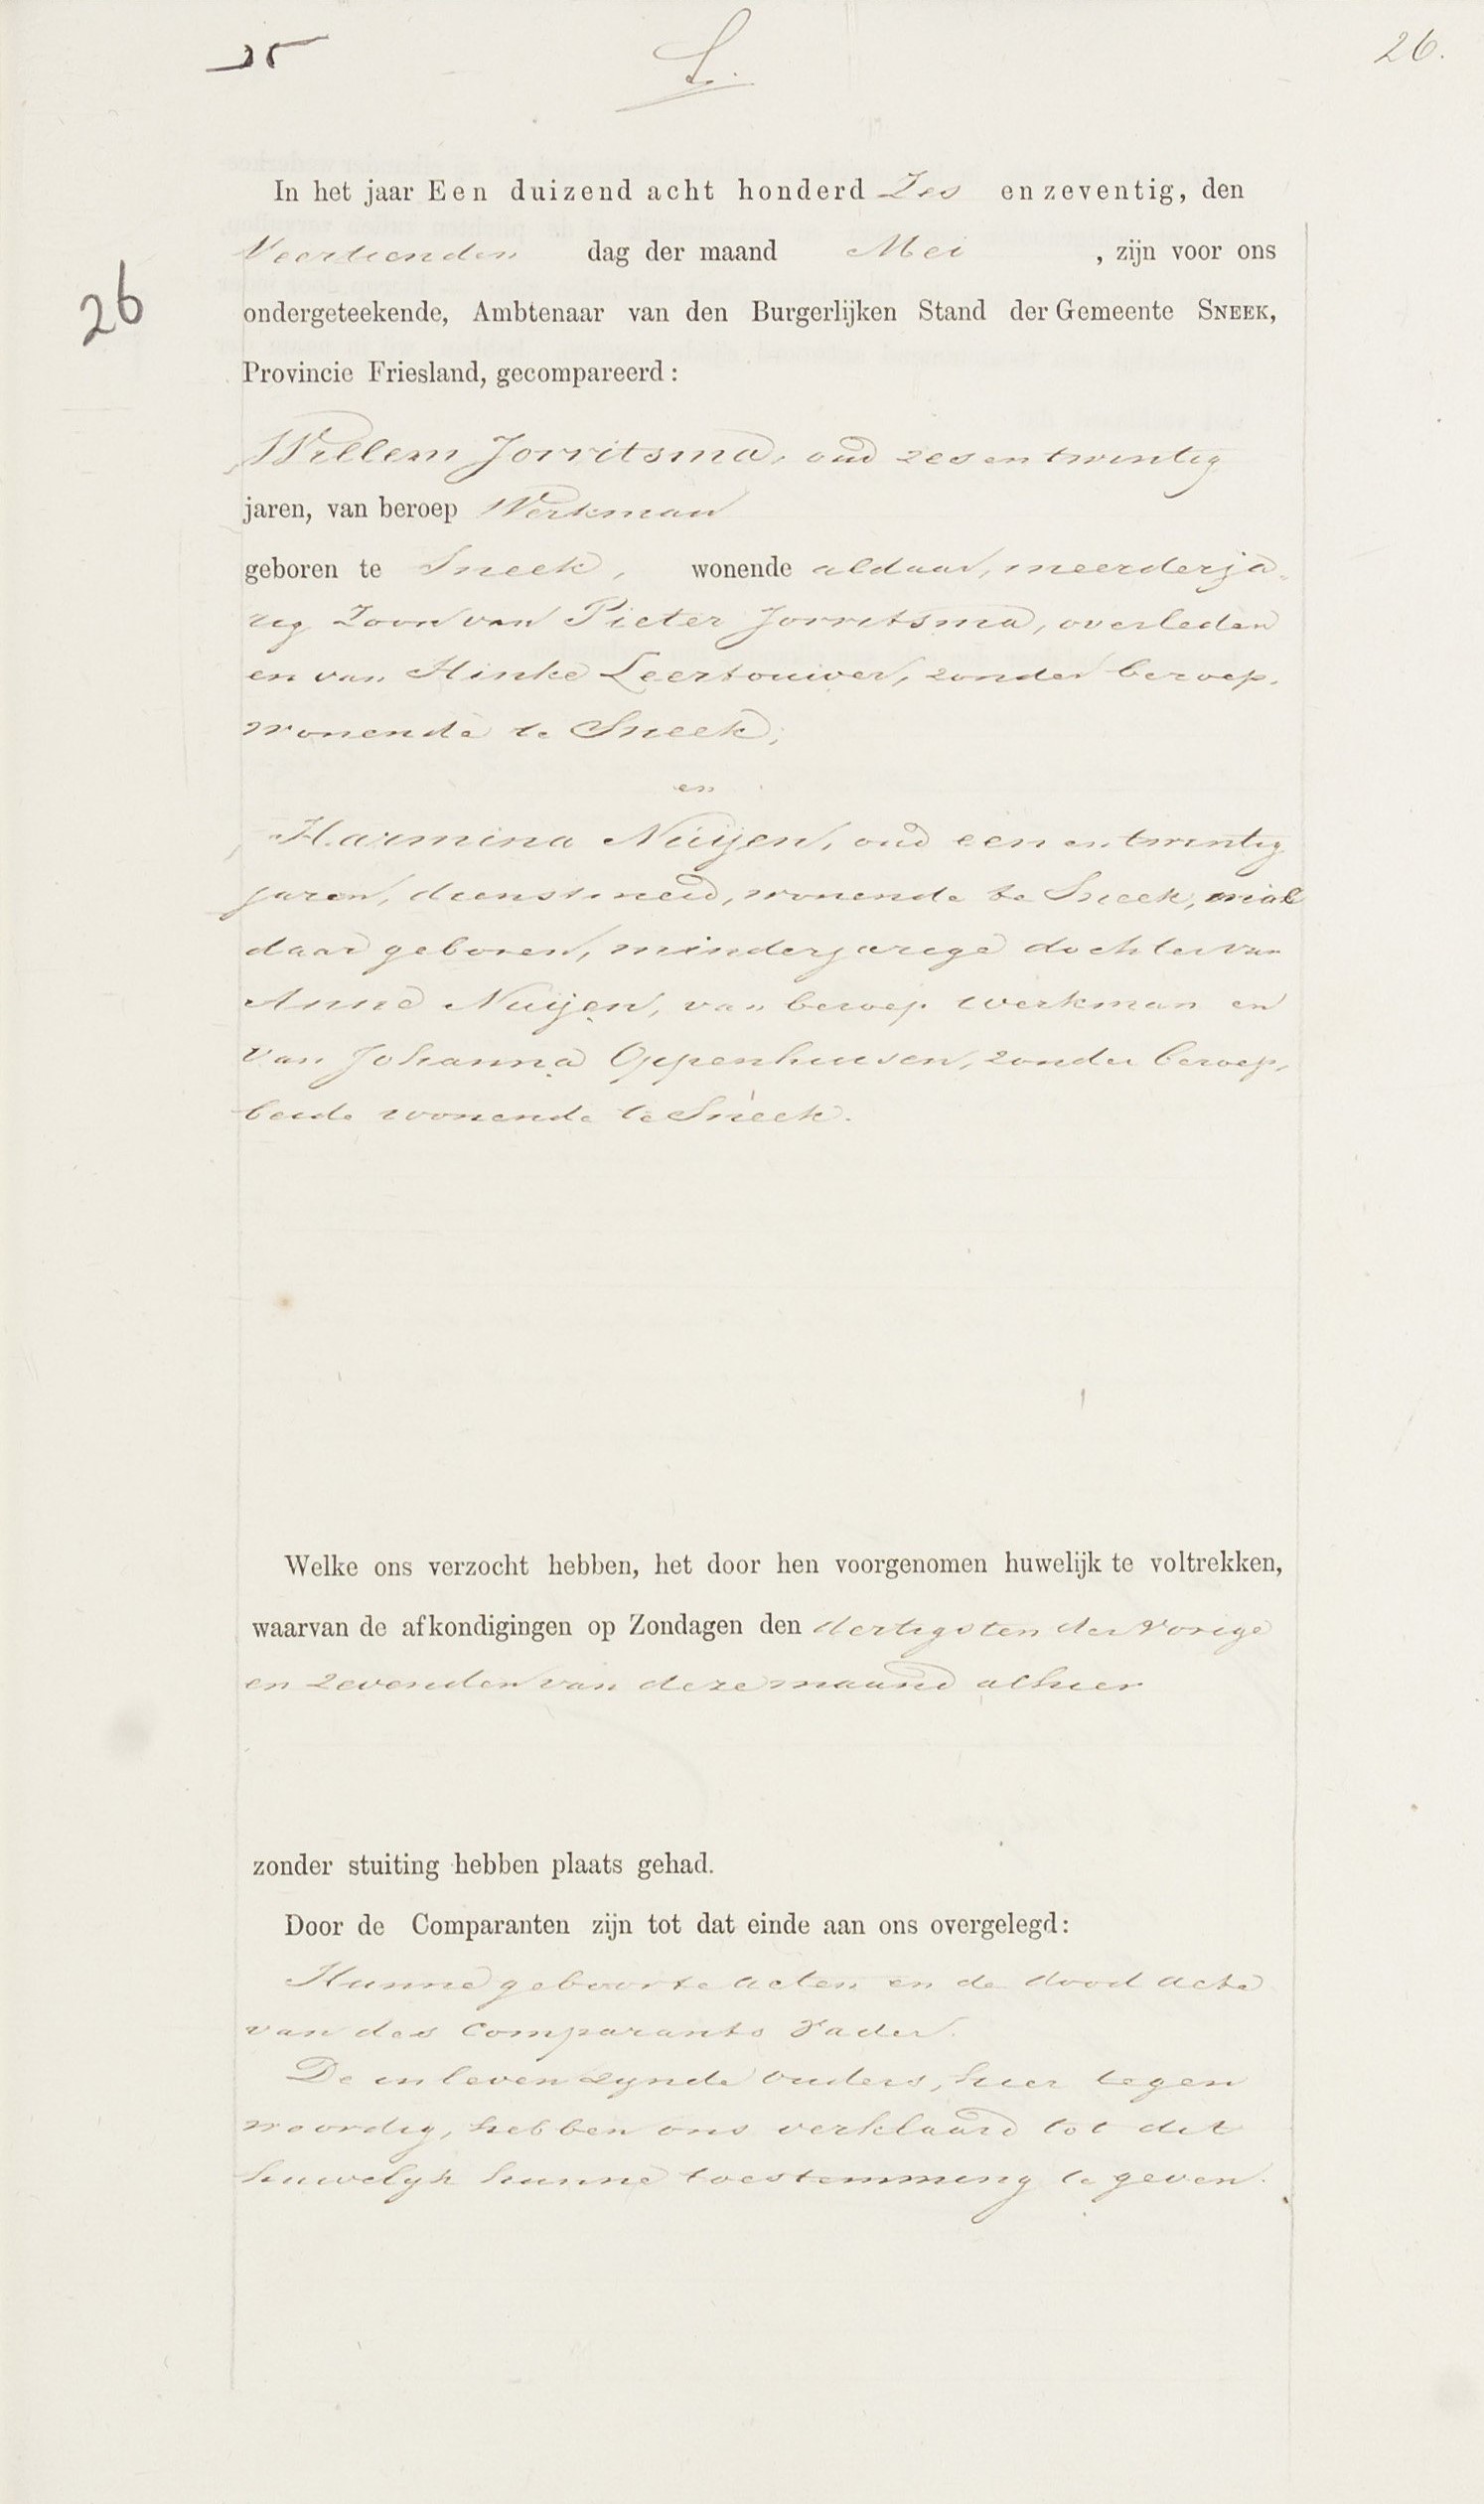 25
S.
26.
In het jaar Een duizend acht honderd Zes en zeventig, den
Veertienden dag der maand Mei , zijn voor ons
26
ondergeteekende, Ambtenaar van den Burgerlijken Stand der Gemeente SNEEK,
Provincie Friesland, gecompareerd:
Willem Jorritsma, oud zes en twintig
jaren, van beroep Werkman
geboren te Sneek, wonende aldaar, meerderja-
rig Zoon van Pieter Jorritsma, overleden
en van Hinke Leertouwer, zonder beroep,
wonende te Sneek;
en
Harmina Nuijen, oud een en twintig
jaren, dienstmeid, wonende te Sneek, en al
daar geboren, minderjarige dochter van
Anne Nuijen, van beroep werkman en
van Johanna Oppenhuisen, zonder beroep,
beide wonende te Sneek.
Welke ons verzocht hebben, het door hen voorgenomen huwelijk te voltrekken,
waarvan de afkondigingen op Zondagen den dertigsten der vorige
en zevenden van deze maand alhier
zonder stuiting hebben plaats gehad.
Door de Comparanten zijn tot dat einde aan ons overgelegd:
Hunne geboorte acten en de dood acte
van des Comparants Vader.
De in leven zijnde ouders, hier tegen
woordig, hebben ons verklaard tot dit
huwelijk hunne toestemming te geven.